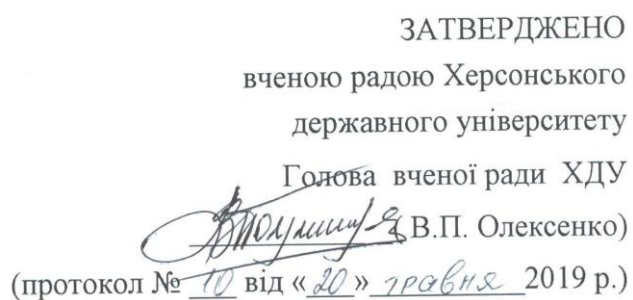 ЗАТВЕРДЖЕНО
вченою радою Херсонського
державного університету
Голова вченої ради ХДУ
(В.П. Олексенко)
(протокол № 10 від «20» травня 2019 р.)